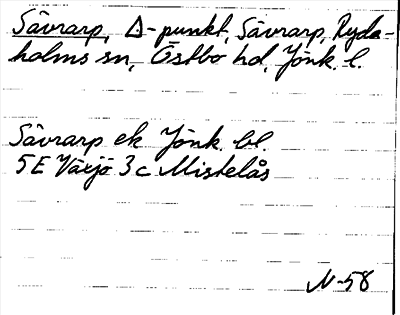 Såvrarp, Δ-punkt, Såvrarp, Ryda-
holms sn, Östbo hd, Jönk. l.
Såvrarp ek Jönk. bl.
5E Växjö 3c Mistelås
N-58